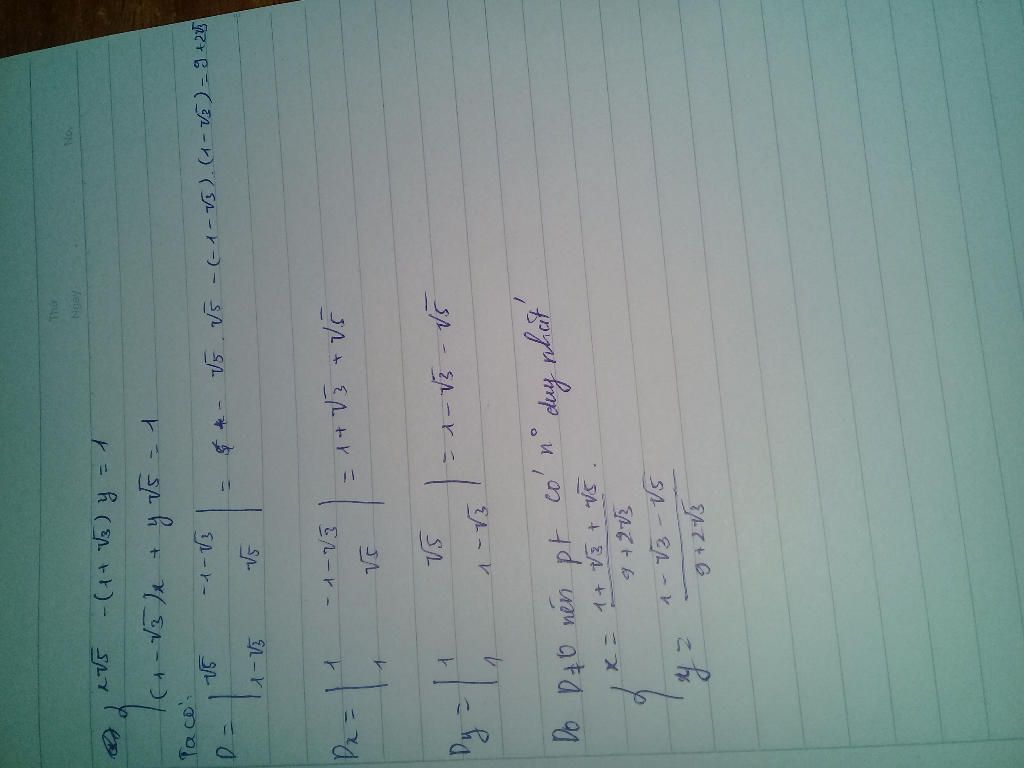 Thứ
Ngày
No.
{ x√5 - (1+√3)y = 1
(1-√3)x + y√5 = 1
Ta có:
D = | √5 -1-√3 | = √5.√5 - (-1-√3).(1-√3) = 9+2√3
1-√3 √5
Dx = | 1 -1-√3 | = 1+√3+√5
1 √5
Dy = | 1 √5 | = 1-√3-√5
1 1-√3
Do D≠0 nên pt có n° duy nhất
{ x = 1+√3+√5 / 9+2√3 .
y = 1-√3-√5 / 9+2√3